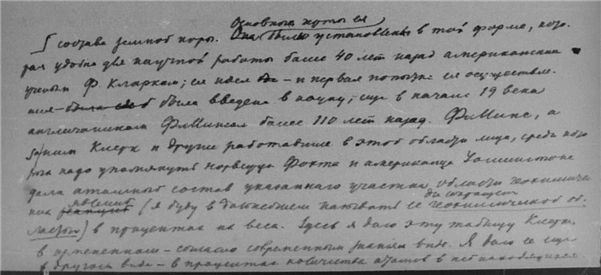 Основным путем ея
состава земной коры. Она была установлена в той форме, кото-
рая удобна для научной работы более 40 лет назад американским
ученым Ф. Кларком; ея идея - и первая попытка ея осуществле-
ния была введена в науку еще в начале 19 века
англичанином Филипсом более 110 лет назад. Филипс, а
за ним Кларк и другие работавшие в этой области лица, среди кото-
рых надо упомянуть норвежца Фохта и американца Вашингтона
дала атомный состав указанного участка области геохимиче
явлений
(я буду в дальнейшем называть ее геохимической об-
ластью) в процентах на веса. Здесь я даю эту таблицу Кларка
в измененном - согласно современным знаниям виде. Я даю ее еще
в другом виде - в процентах количества атомов в ней находящихся